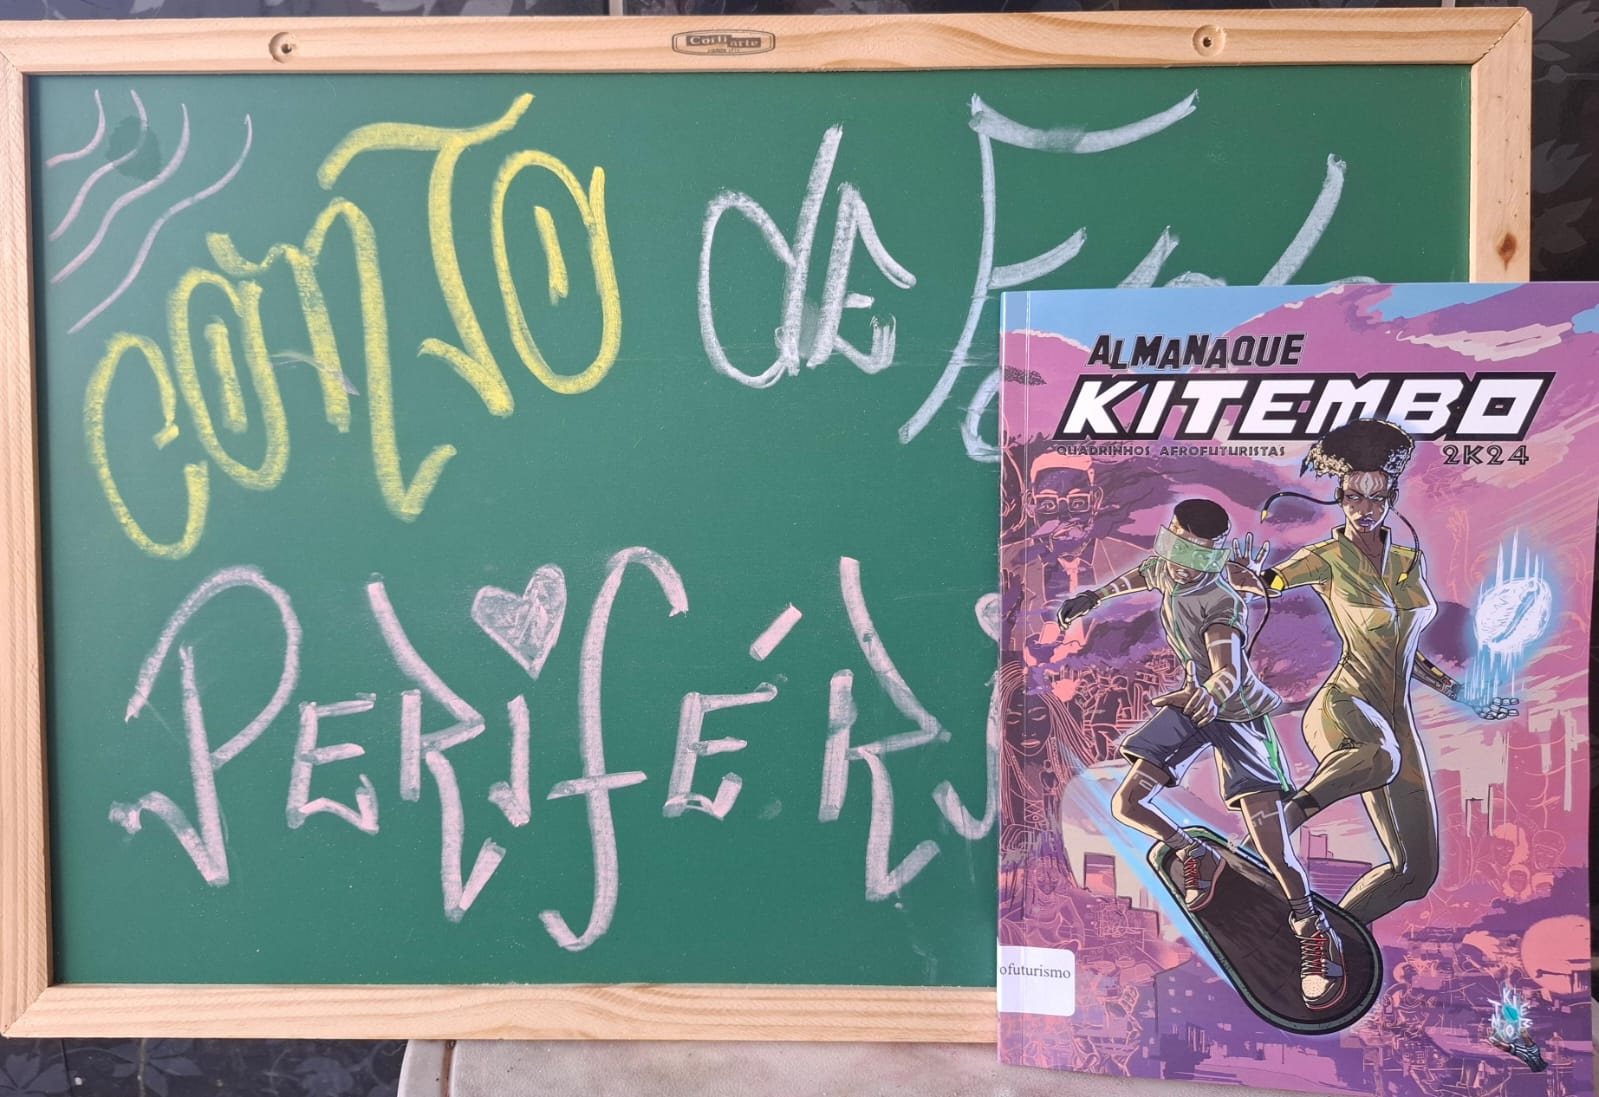 Corti arte
CONTO de
PERIFÉRi
ALMANAQUE
KITEMBO
QUADRINHOS AFROFUTURISTAS
2K24
ofuturismo
KITEMBO